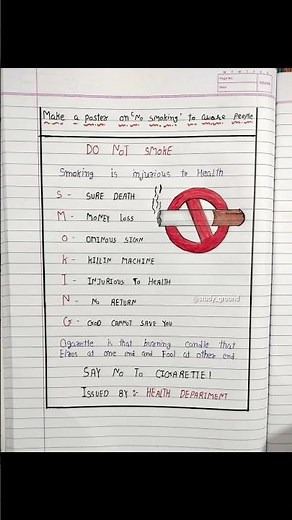 Make a poster on "No smoking" to aware people
DO NOT SMOKE
Smoking is injurious to Health
S - SURE DEATH
M - MONEY LOSS
O - OMINOUS SIGN
K - KILLIN MACHINE
I - INJURIOUS TO HEALTH
@study_ground
N - NO RETURN
G - GOD CANNOT SAVE YOU
Cigarette is that burning candle that
Fires at one end and Fool at other end
SAY NO TO CIGARETTE!
ISSUED BY :- HEALTH DEPARTMENT